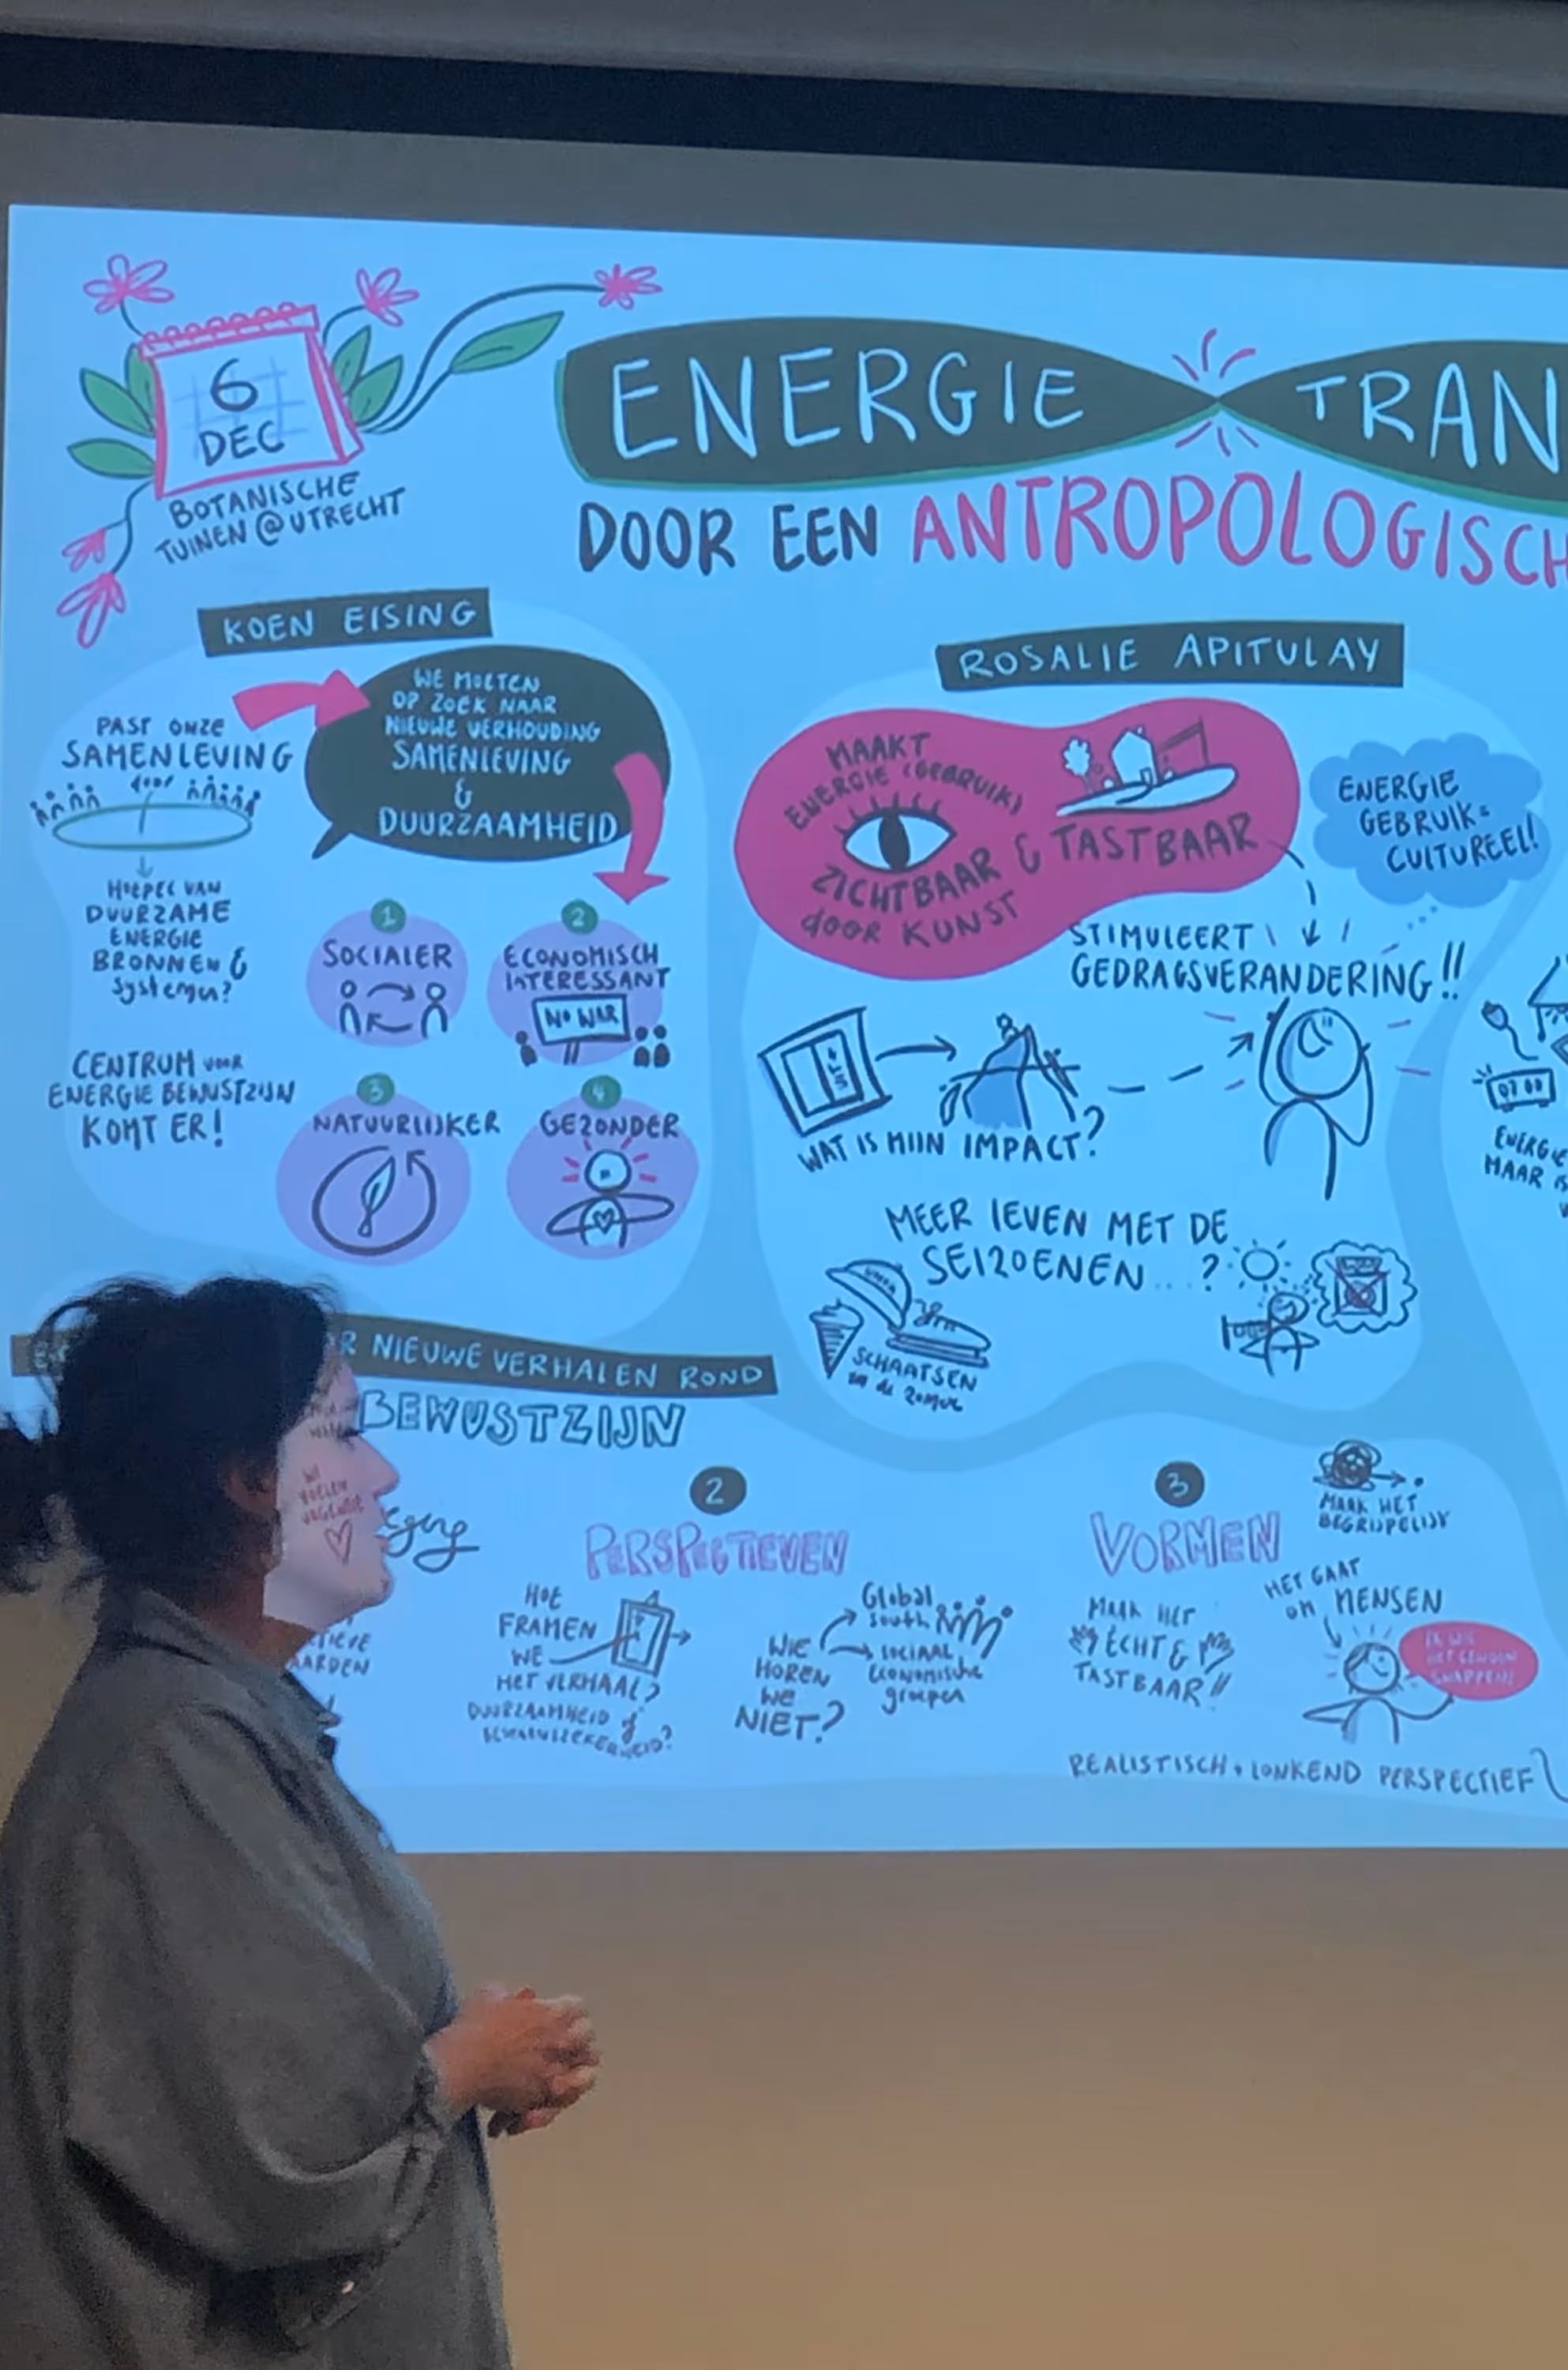 6
DEC
BOTANISCHE
TUINEN @ UTRECHT
ENERGIE TRAN
DOOR EEN ANTROPOLOGISCH
KOEN EISING
PAST ONZE
SAMENLEVING
door
HOEPEL VAN
DUURZAME
ENERGIE
BRONNEN &
systemen?
CENTRUM voor
ENERGIE BEWUSTZIJN
KOMT ER!
WE MOETEN
OP ZOEK NAAR
NIEUWE VERHOUDING
SAMENLEVING
&
DUURZAAMHEID
1
SOCIALER
2
ECONOMISCH
INTERESSANT
NO WAR
3
NATUURLIJKER
4
GEZONDER
ROSALIE APITULAY
MAAKT
ENERGIE (GEBRUIK)
ZICHTBAAR & TASTBAAR
door KUNST
ENERGIE
GEBRUIK =
CULTUREEL!
STIMULEERT
GEDRAGSVERANDERING!!
WAT IS MIJN IMPACT?
MEER LEVEN MET DE
SEIZOENEN...?
SCHAATSEN
in de zomer
ENERGIE
MAAR IS
R NIEUWE VERHALEN ROND
BEWUSTZIJN
WE
VOELEN
URGENTIE
ging
TIEVE
AARDEN
2
PERSPECTIEVEN
HOE
FRAMEN
WE
HET VERHAAL?
DUURZAAMHEID of
WIE
HOREN
WE
NIET?
Global
south
SOCIAAL
Economische
groepen
3
VORMEN
MAAK HET
BEGRIJPELIJK
MAAK HET
ECHT &
TASTBAAR!!
HET GAAT
om MENSEN
IK WIL
HET GEWOON
SNAPPEN!
REALISTISCH + LONKEND PERSPECTIEF